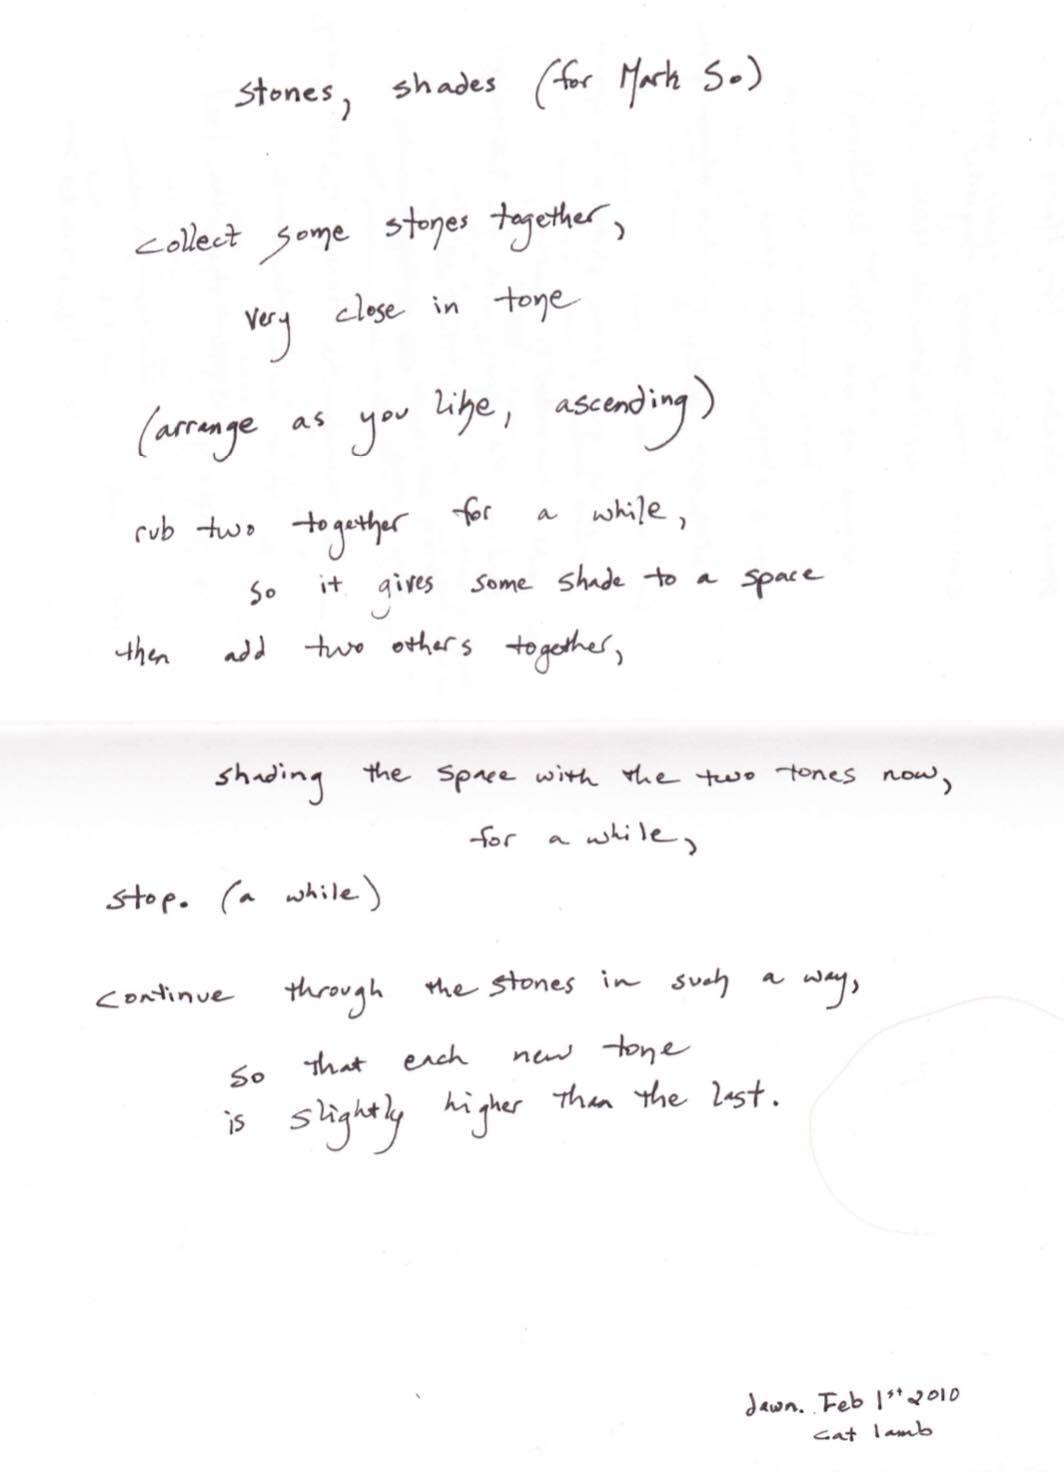 stones, shades (for Mark So)
collect some stones together,
very close in tone
(arrange as you like, ascending)
rub two together for a while,
so it gives some shade to a space
then add two others together,
shading the space with the two tones now,
for a while,
stop. (a while)
continue through the stones in such a way,
so that each new tone
is slightly higher than the last.
dawn. Feb 1st 2010
cat lamb